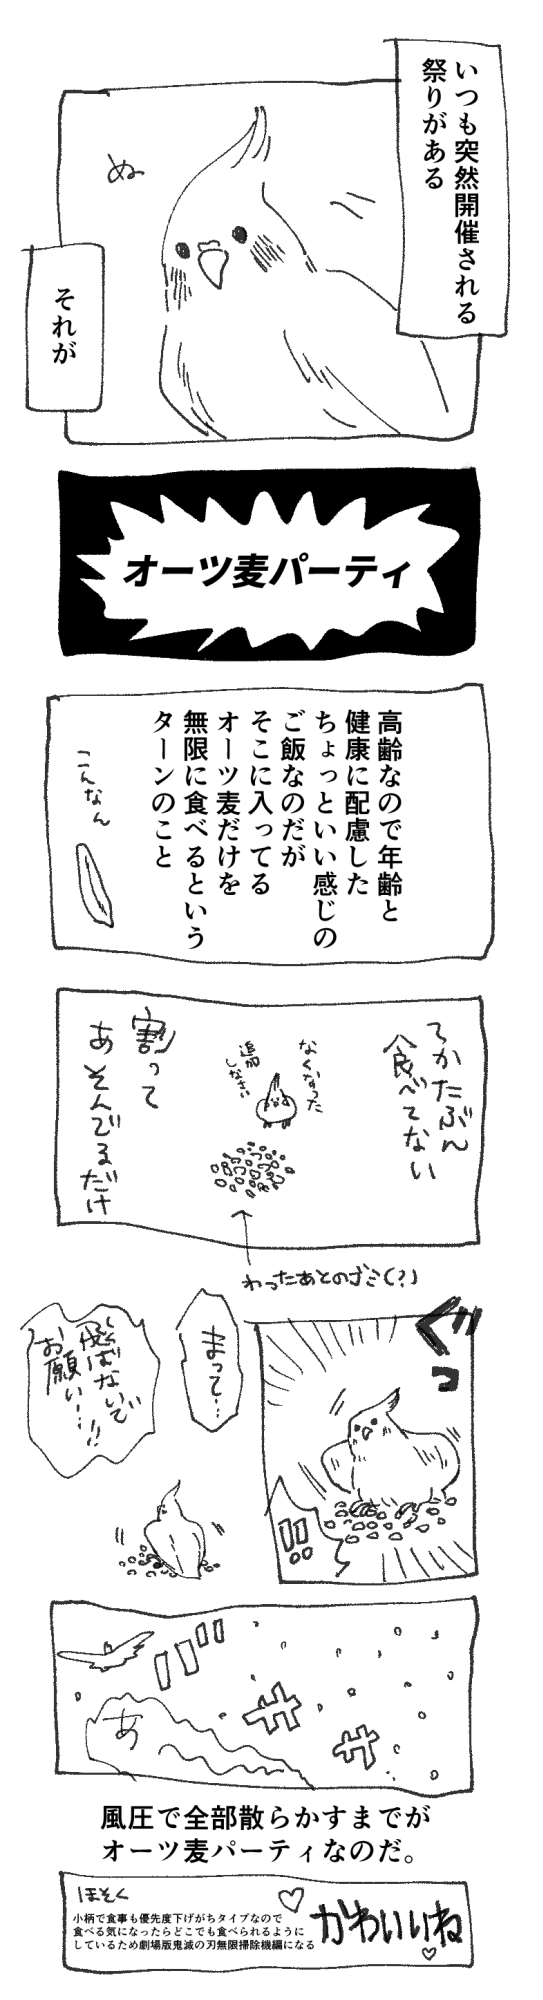 いつも突然開催される
祭りがある
ぬ
それが
オーツ麦パーティ
高齢なので年齢と
健康に配慮した
ちょっといい感じの
ご飯なのだが
そこに入ってる
オーツ麦だけを
無限に食べるという
ターンのこと
こんなん
てかたぶん
食べてない
なくなった
追加
しなさい
割って
あそんでるだけ
わったあとのゴミ(?)
ぐっ
!!
まって…
飛ばないで
お願い…!!
バサ
サ
あ
風圧で全部散らかすまでが
オーツ麦パーティなのだ。
ほそく
小柄で食事も優先度下げがちタイプなので
食べる気になったらどこでも食べられるように
しているため劇場版鬼滅の刃無限掃除機編になる
かわいいね